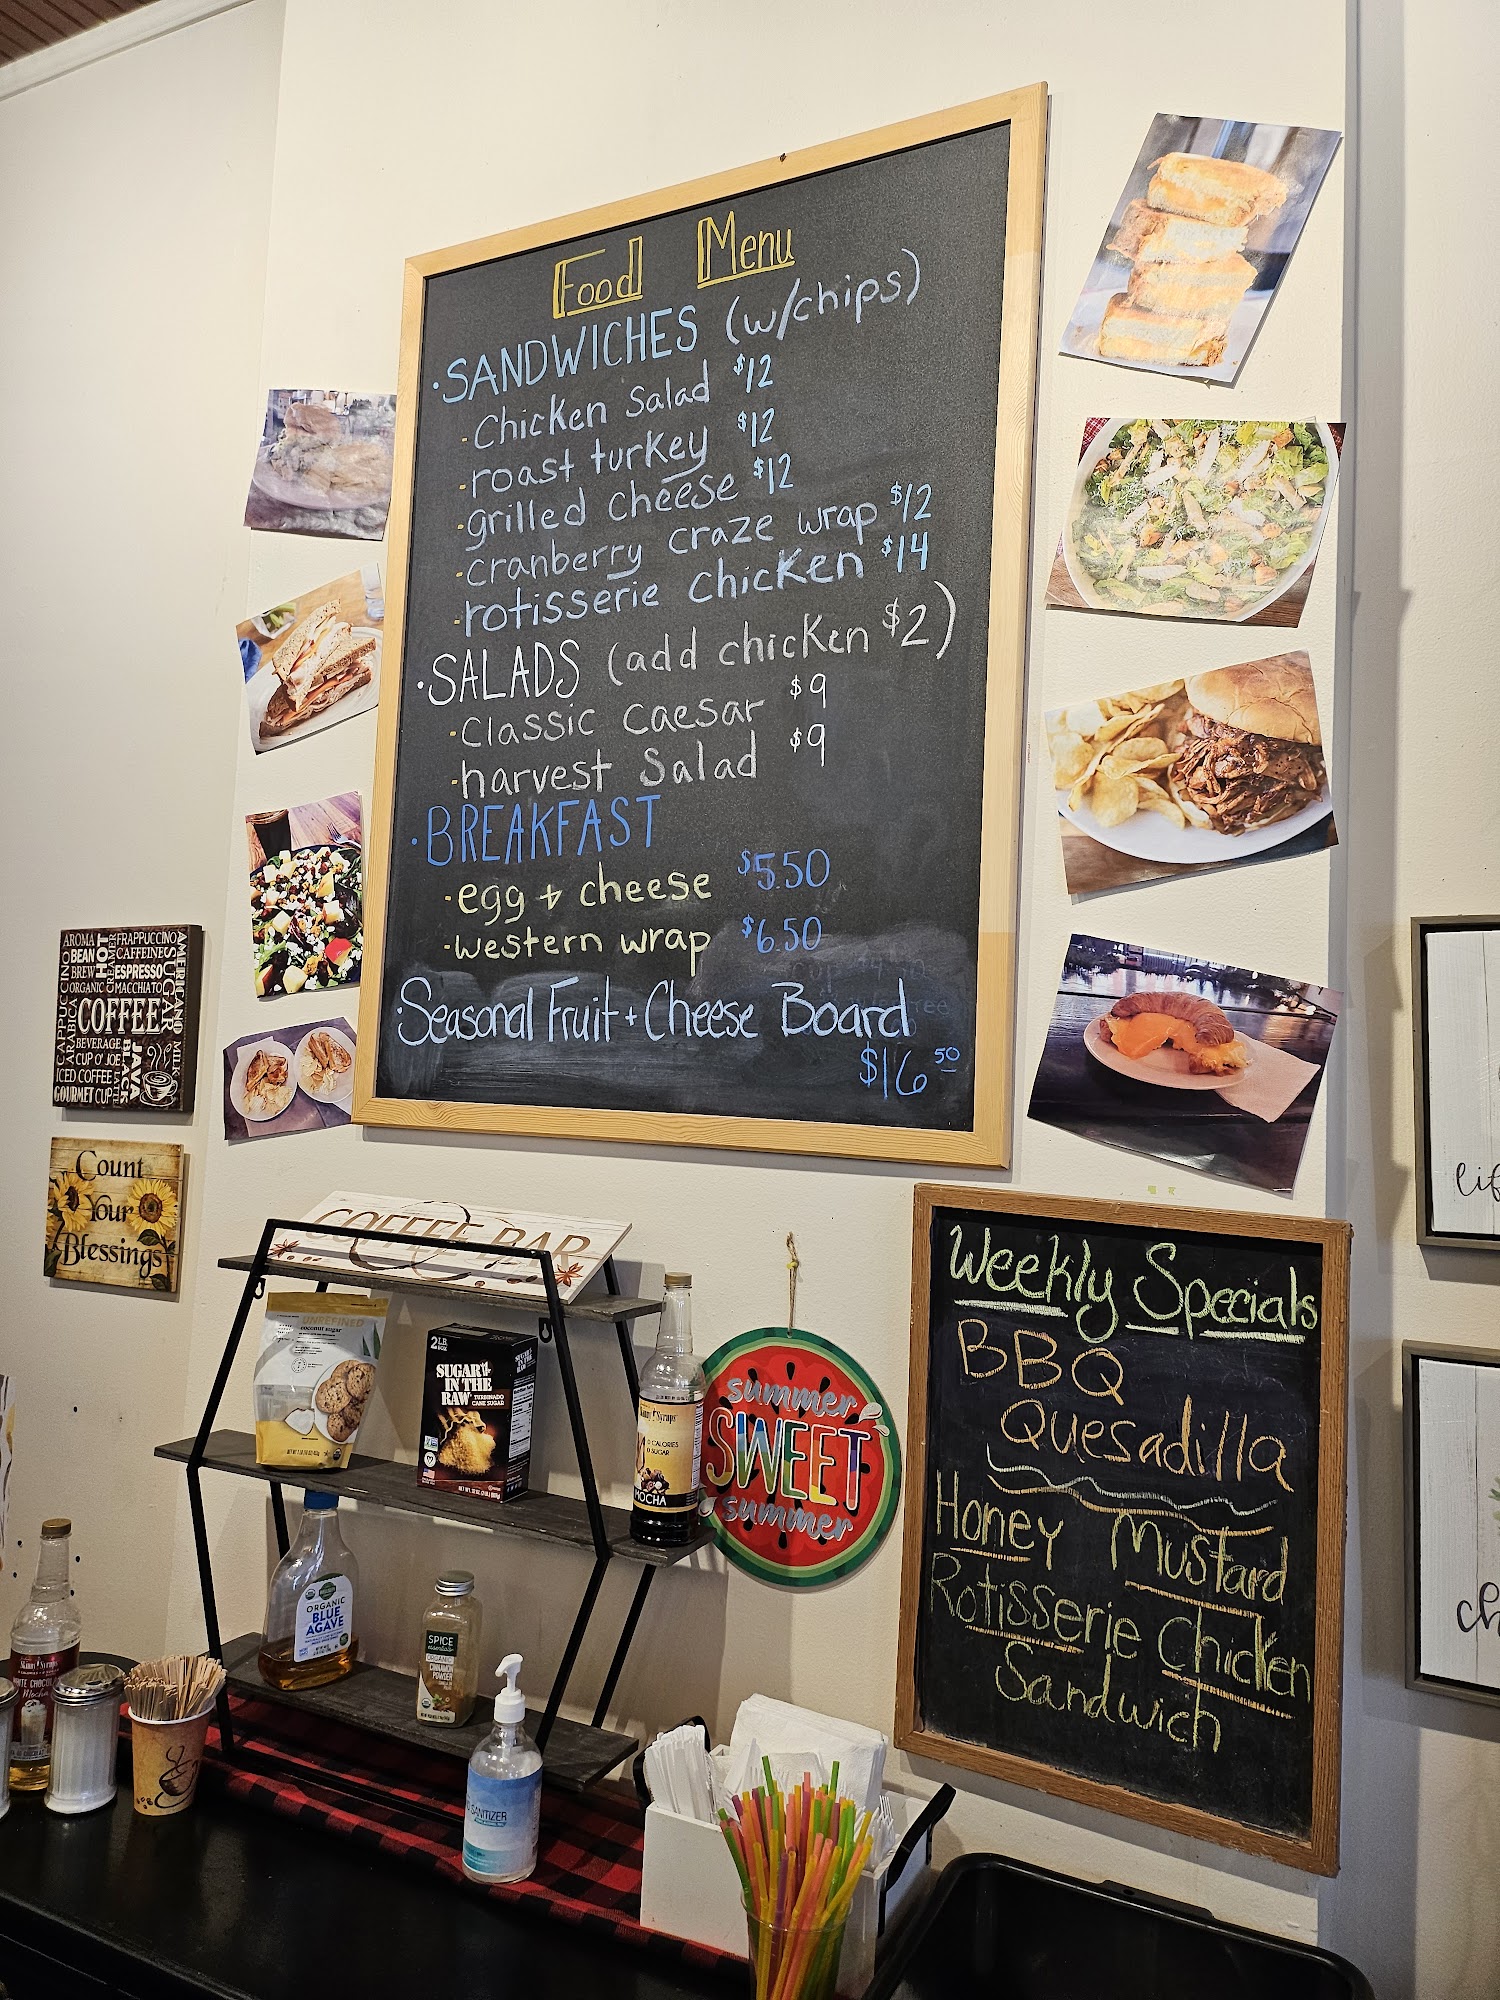 Food Menu
·SANDWICHES (w/chips)
-Chicken Salad $12
-roast turkey $12
-grilled cheese $12
-cranberry craze wrap $12
-rotisserie chicken $14
·SALADS (add chicken $2)
-Classic Caesar $9
-harvest Salad $9
·BREAKFAST
-egg + cheese $5.50
-western wrap $6.50
·Seasonal Fruit + Cheese Board
$16 50
Weekly Specials
BBQ
Quesadilla
Honey Mustard
Rotisserie Chicken
Sandwich
AROMA
BEAN
BREW
ORGANIC
HOT
CREAMER
FRAPPUCCINO
CAFFEINE
ESPRESSO
MACCHIATO
AMERICANO
SUGAR
MILK
CAPPUCCINO
ARABICA
COFFEE
BEVERAGE
CUP O' JOE
ICED COFFEE
GOURMET CUP
JAVA
BLACK
LATTE
Count
Your
Blessings
COFFEE BAR
UNREFINED
coconut sugar
2 LB
BOX
SUGAR
IN THE
RAW
TURBINADO
CANE SUGAR
Skinny Syrups
0 CALORIES
0 SUGAR
MOCHA
summer
SWEET
summer
ORGANIC
BLUE
AGAVE
SPICE
essentials
ORGANIC
CINNAMON
POWDER
Skinny Syrups
Mocha
SANITIZER